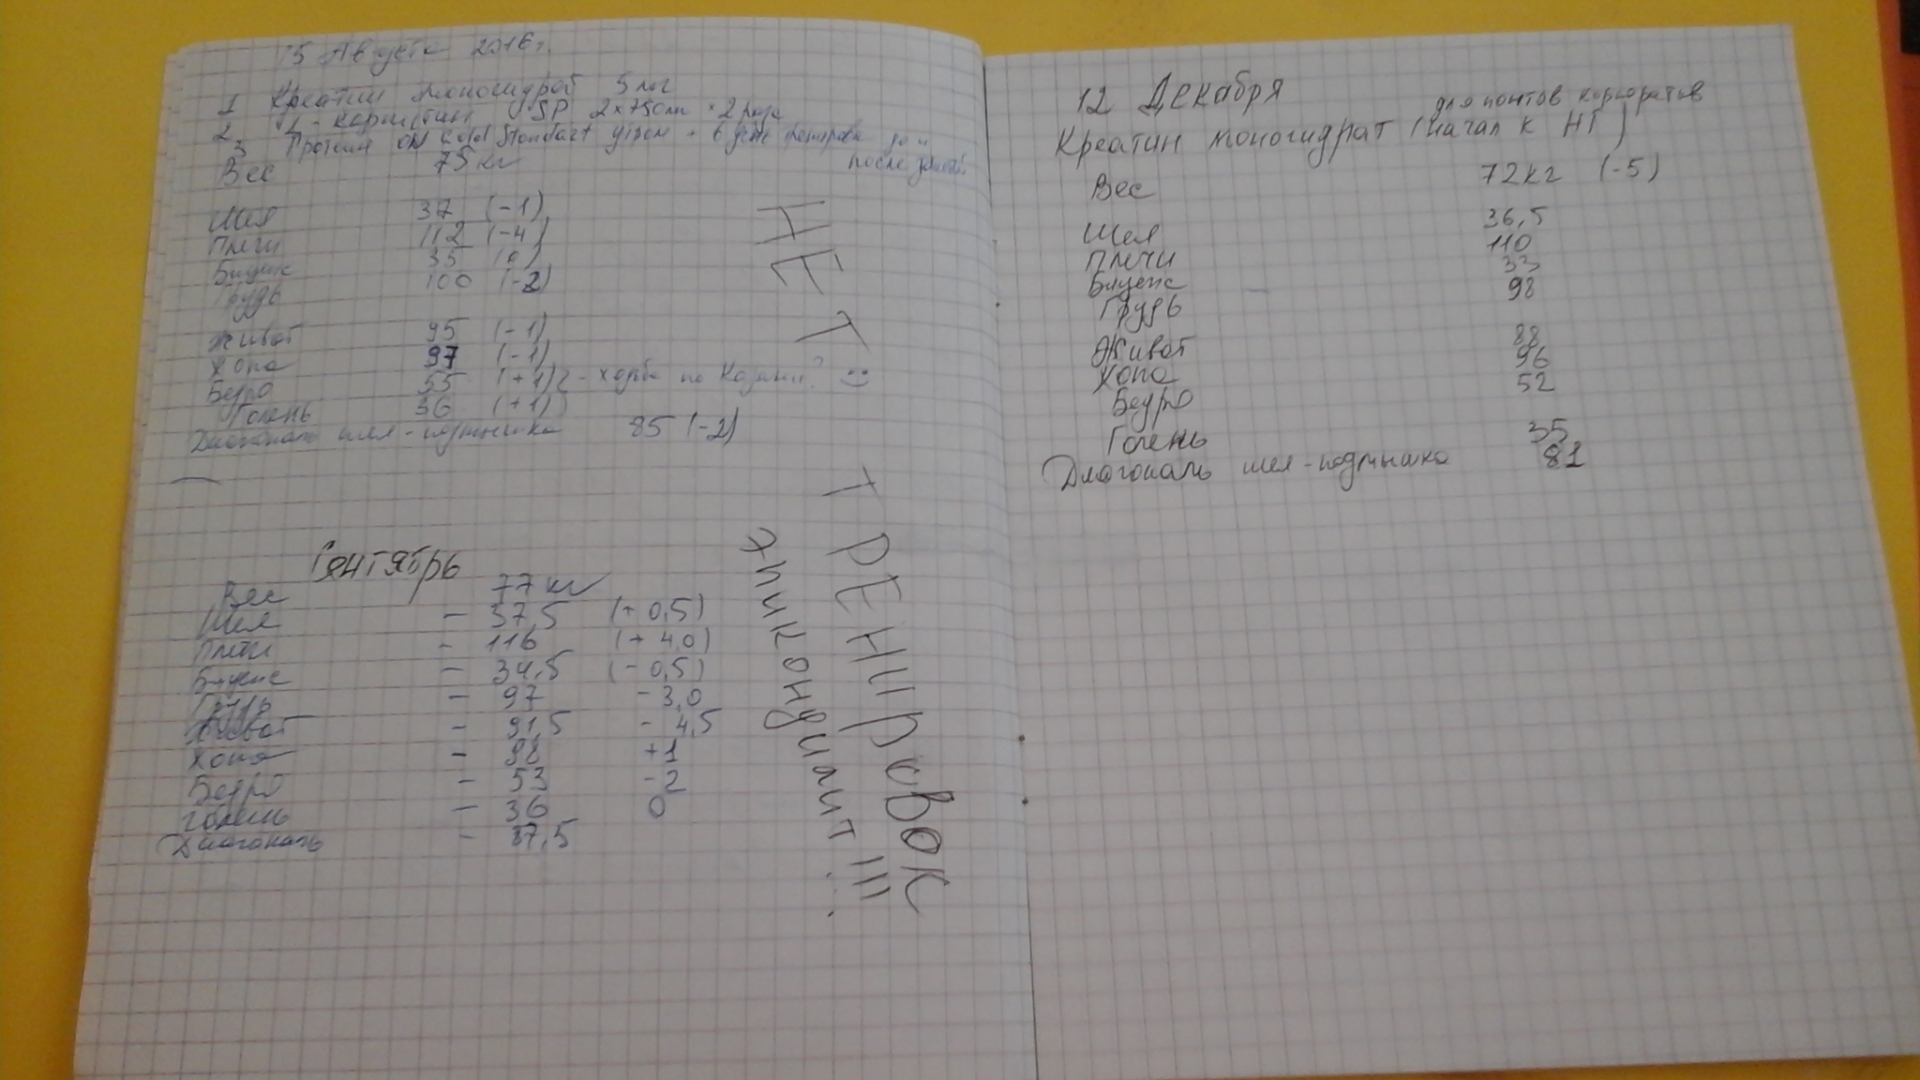 15 Августа 2016г.
1 Креатин моногидрат 5 мг
2 L-карнитин SP 2х750мг * 2 раза
3 Протеин ON Gold Standart утром + в день
Вес 75 кг после
Шея 37 (-1)
Плечи 112 (-4)
Бицепс 35 (0)
Грудь 100 (-2)
Живот 95 (-1)
Жопа 97 (-1)
Бедро 55 (+1)
Голень 36 (+1)
Диагональ шея-подмышка 85 (-2)
Сентябрь
Вес 77 кг
Шея - 37,5 (+0,5)
Плечи - 116 (+4,0)
Бицепс - 34,5 (-0,5)
Грудь - 97 -3,0
Живот - 91,5 -4,5
Жопа - 98 +1
Бедро - 53 -2
Голень - 36 0
Диагональ - 87,5
НЕТ ТРЕНИРОВОК
эпикондилит!!!
12 Декабря
для понтов корпоратив
Креатин моногидрат (начал к НГ)
Вес 72кг (-5)
Шея 36,5
Плечи 110
Бицепс 33
Грудь 98
Живот 88
Жопа 96
Бедро 52
Голень 35
Диагональ шея-подмышка 81